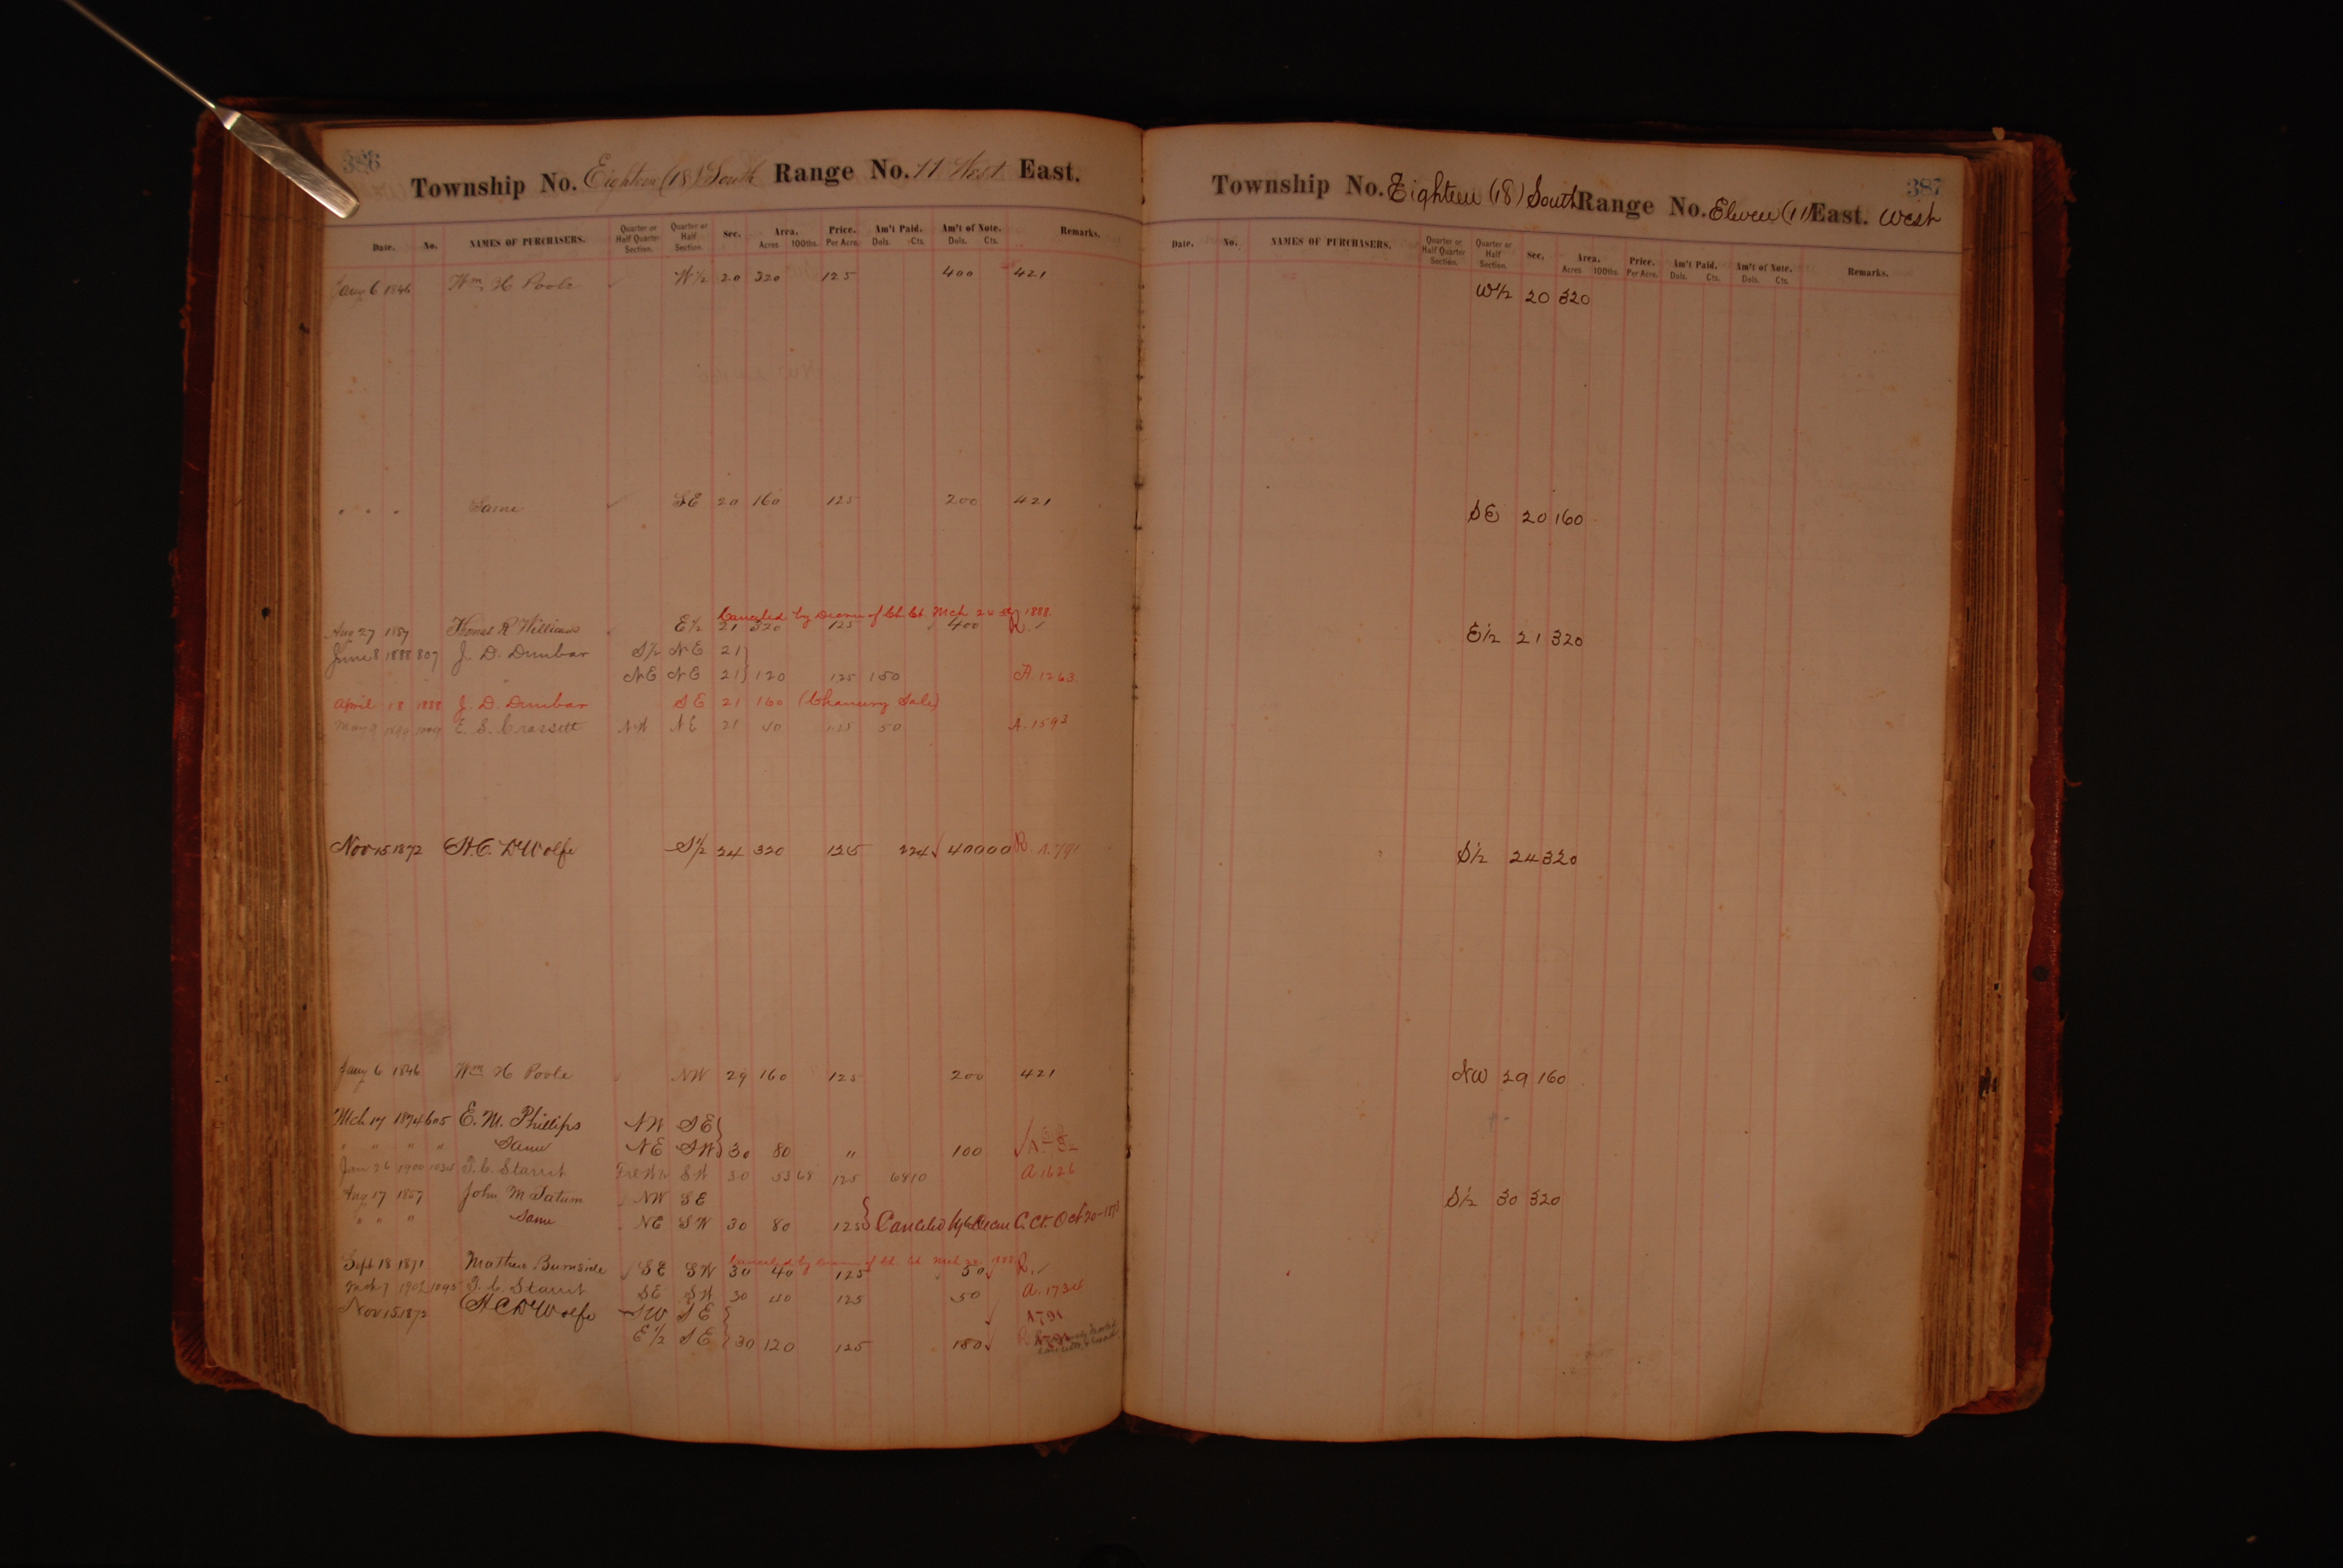 386
Township No. Eighteen (18) South Range No. 11 West East.
Date. No. NAMES OF PURCHASERS. Quarter or Half Quarter Section. Quarter or Half Section. Sec. Area. Acres 100ths. Price. Per Acre. Am't Paid. Dols. Cts. Am't of Note. Dols. Cts. Remarks.
Jany 6 1846 Wm H Poole W½ 20 320 125 400 421
" " " Same SE 20 160 125 200 421
Canceled by Decree of Ch. Ct. Mch 1888.
Aug 27 1857 Thomas R Williams E½ 21 320 125 400 R.
June 8 1888 807 J. D. Dunbar S½ NE 21
NE NE 21 120 125 150 A. 1263
April 18 1888 J. D. Dunbar SE 21 160 (Chancery Sale)
May 9 E. S. Crossett NW NE 21 40 125 50 A. 1593
Nov 15 1872 H. C. DWolfe S½ 24 320 125 224 400 00 R A. 791
Jany 6 1846 Wm H Poole NW 29 160 125 200 421
Mch 17 1874 605 E. M. Phillips NW SE
" " " " Same NE SW 30 80 " 100
Jan 26 1900 SW 30 53 68 125 68 10 A 1626
Aug 17 1857 John M Tatum NW SE
" " " Same NE SW 30 80 125 Canceled by Decree C. Ct. Oct 20-
Canceled by Decree of Ch. Ct. Mch
Sept 18 1871 Mathew Burnside SE SW 30 40 125 50 R.
Mch 7 1902 1095 SE SW 30 40 125 50 A. 1734
Nov 15 1872 H C DWolfe SW SE A 791
E½ SE 30 120 125 150
387
Township No. Eighteen (18) South Range No. Eleven (11) East. West
Date. No. NAMES OF PURCHASERS. Quarter or Half Quarter Section. Quarter or Half Section. Sec. Area. Acres 100ths. Price. Per Acre. Am't Paid. Dols. Cts. Am't of Note. Dols. Cts. Remarks.
W½ 20 320
SE 20 160
E½ 21 320
S½ 24 320
NW 29 160
S½ 30 320